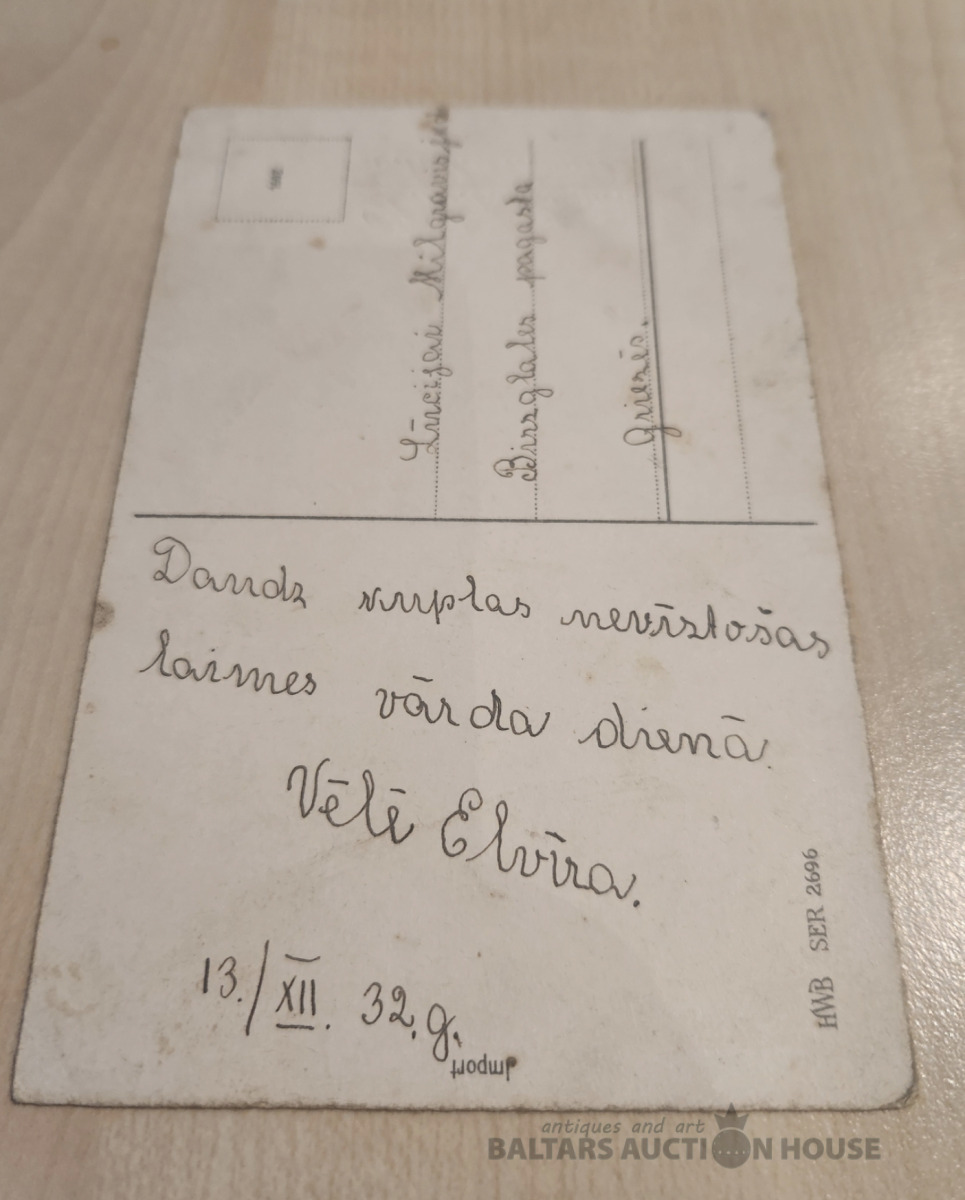 Daudz kuplas nevīstošas
laimes vārda dienā.
Vēlē Elvīra.
13./XII. 32.g.
Lūcijai
Birzgales pagasta
Griezēs.
Import
HWB SER 2696
antiques and art
BALTARS AUCTION HOUSE